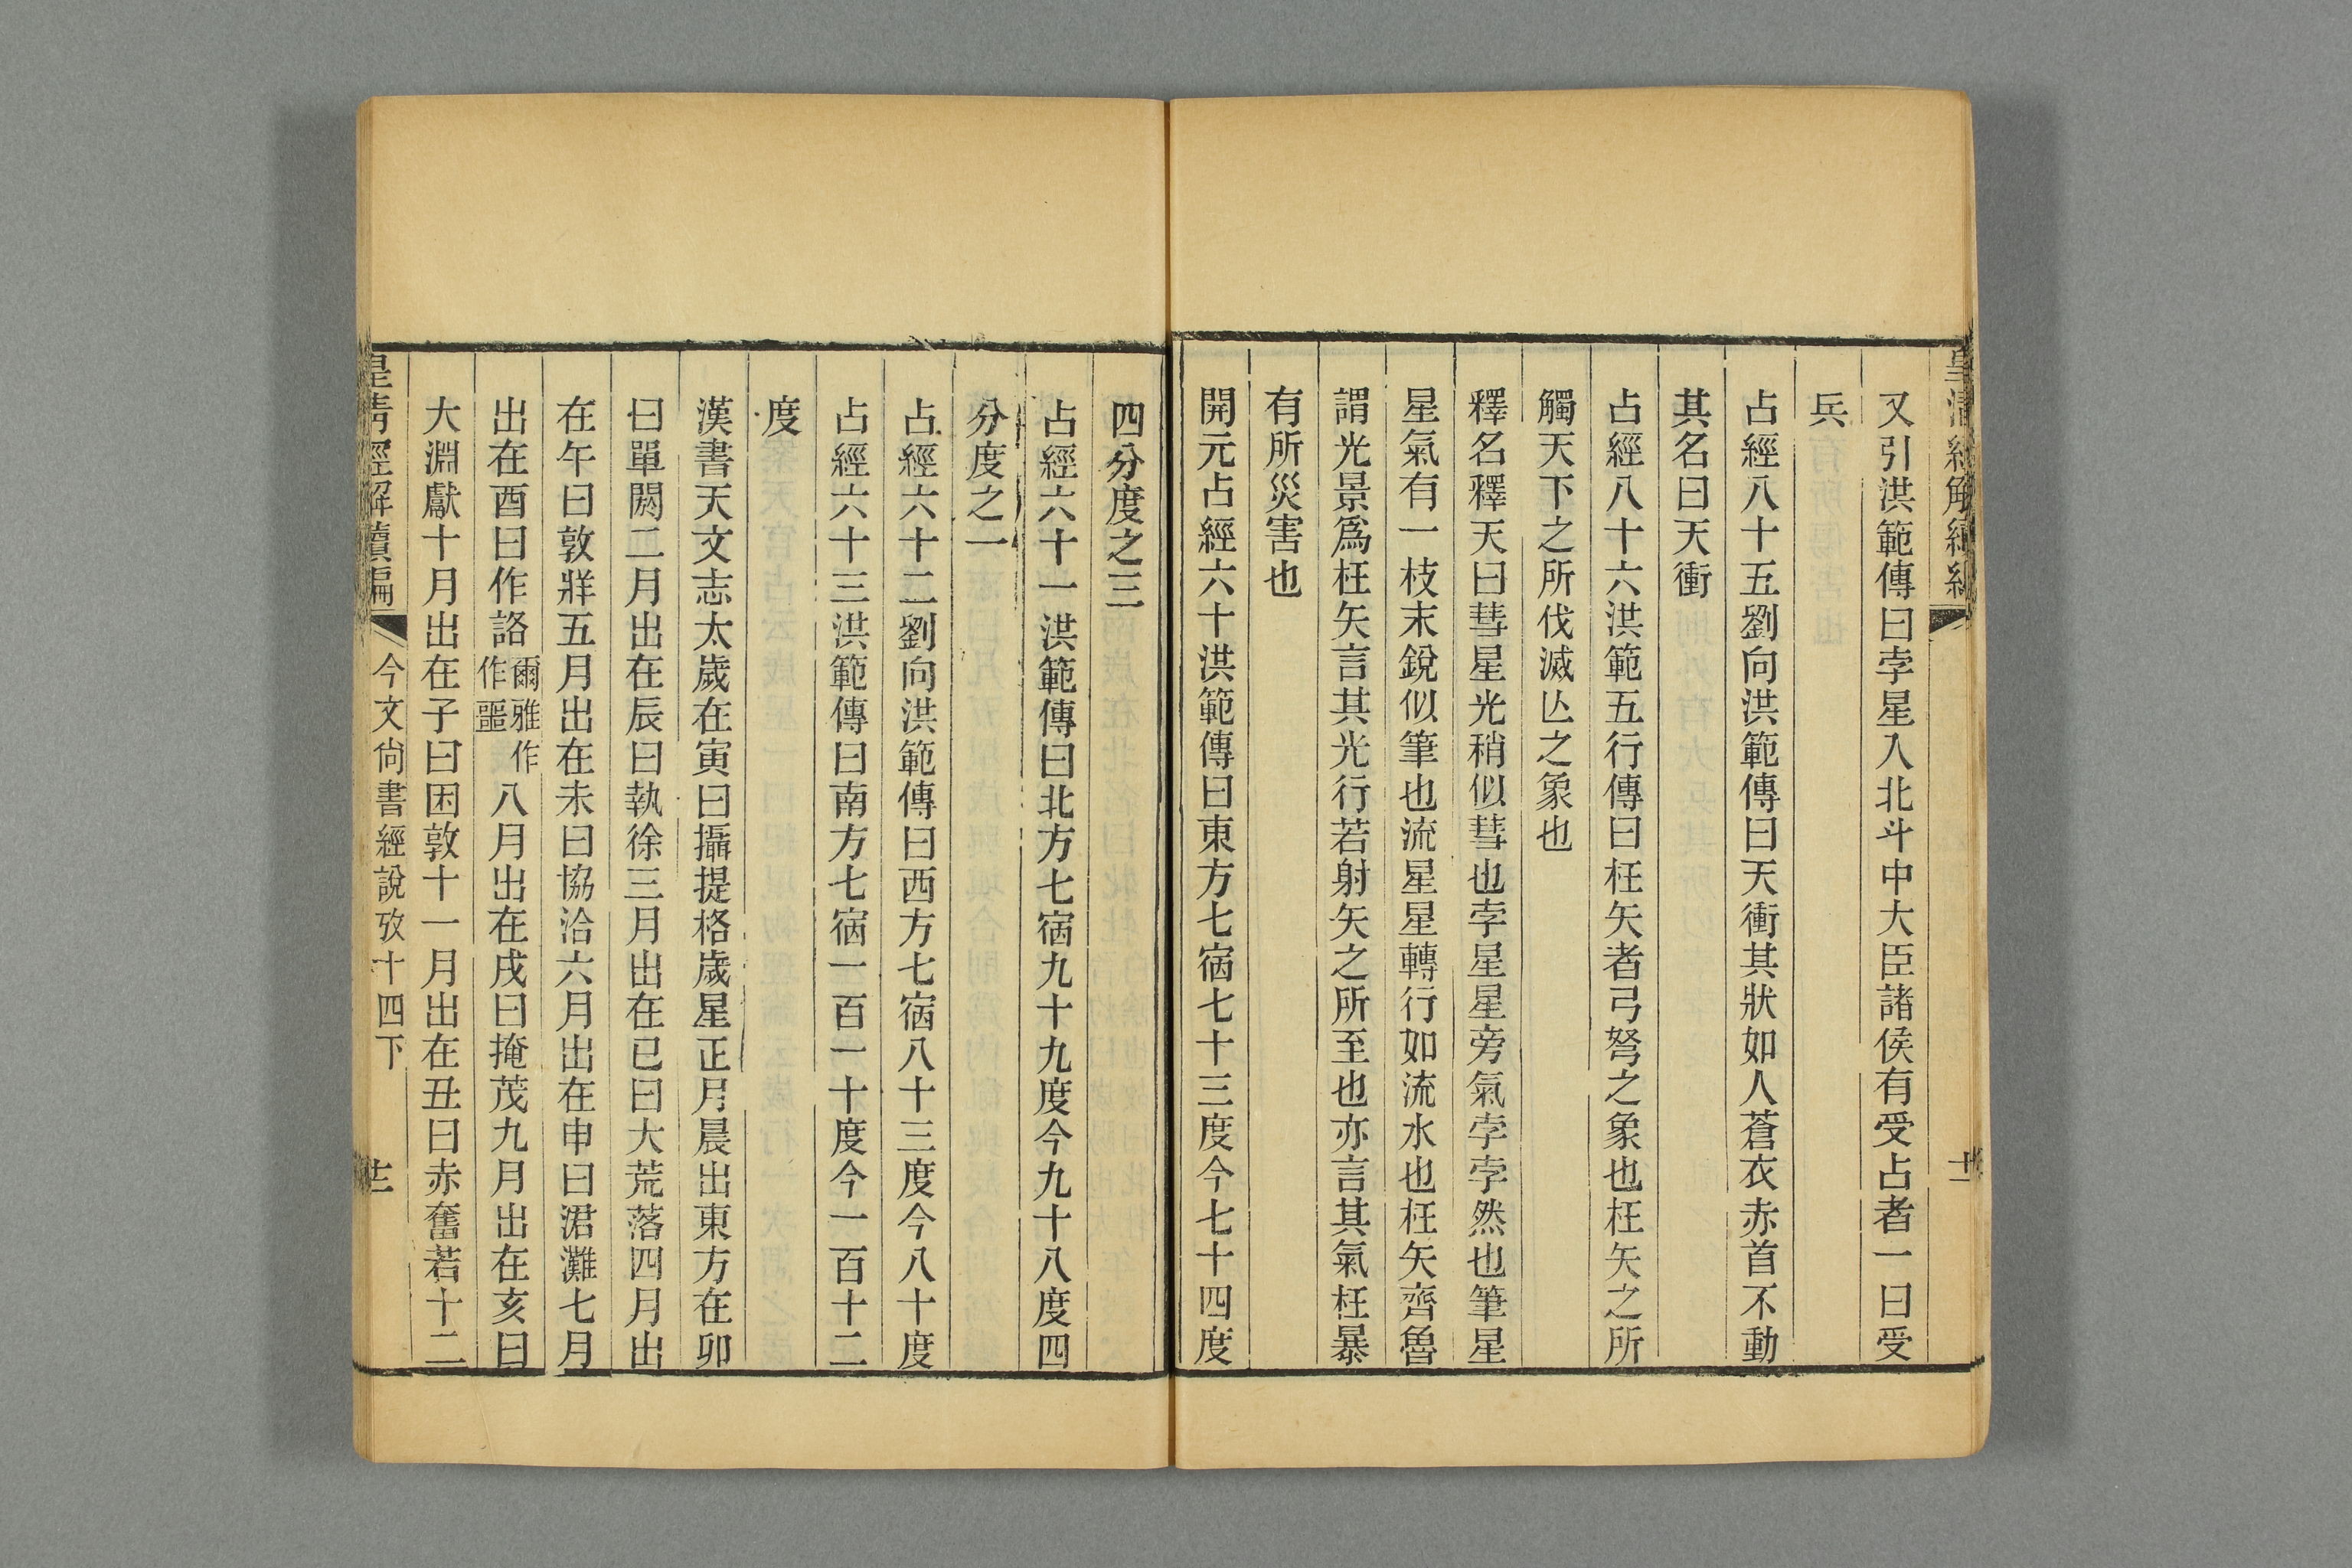 皇清經解續編
十一
又引洪範傳曰孛星入北斗中大臣諸侯有受占者一曰受
兵
占經八十五劉向洪範傳曰天衝其狀如人蒼衣赤首不動
其名曰天衝
占經八十六洪範五行傳曰枉矢者弓弩之象也枉矢之所
觸天下之所伐滅亾之象也
釋名釋天曰彗星光稍似彗也孛星星旁氣孛孛然也筆星
星氣有一枝末銳似筆也流星星轉行如流水也枉矢齊魯
謂光景爲枉矢言其光行若射矢之所至也亦言其氣枉暴
有所災害也
開元占經六十洪範傳曰東方七宿七十三度今七十四度
四分度之三
占經六十一洪範傳曰北方七宿九十九度今九十八度四
分度之一
占經六十二劉向洪範傳曰西方七宿八十三度今八十度
占經六十三洪範傳曰南方七宿一百一十度今一百十二
度
漢書天文志太歲在寅曰攝提格歲星正月晨出東方在卯
曰單閼二月出在辰曰執徐三月出在巳曰大荒落四月出
在午曰敦牂五月出在未曰協洽六月出在申曰涒灘七月
出在酉曰作詻爾雅作作噩八月出在戌曰掩茂九月出在亥曰
大淵獻十月出在子曰困敦十一月出在丑曰赤奮若十二
皇清經解續編
今文尙書經說攷十四下